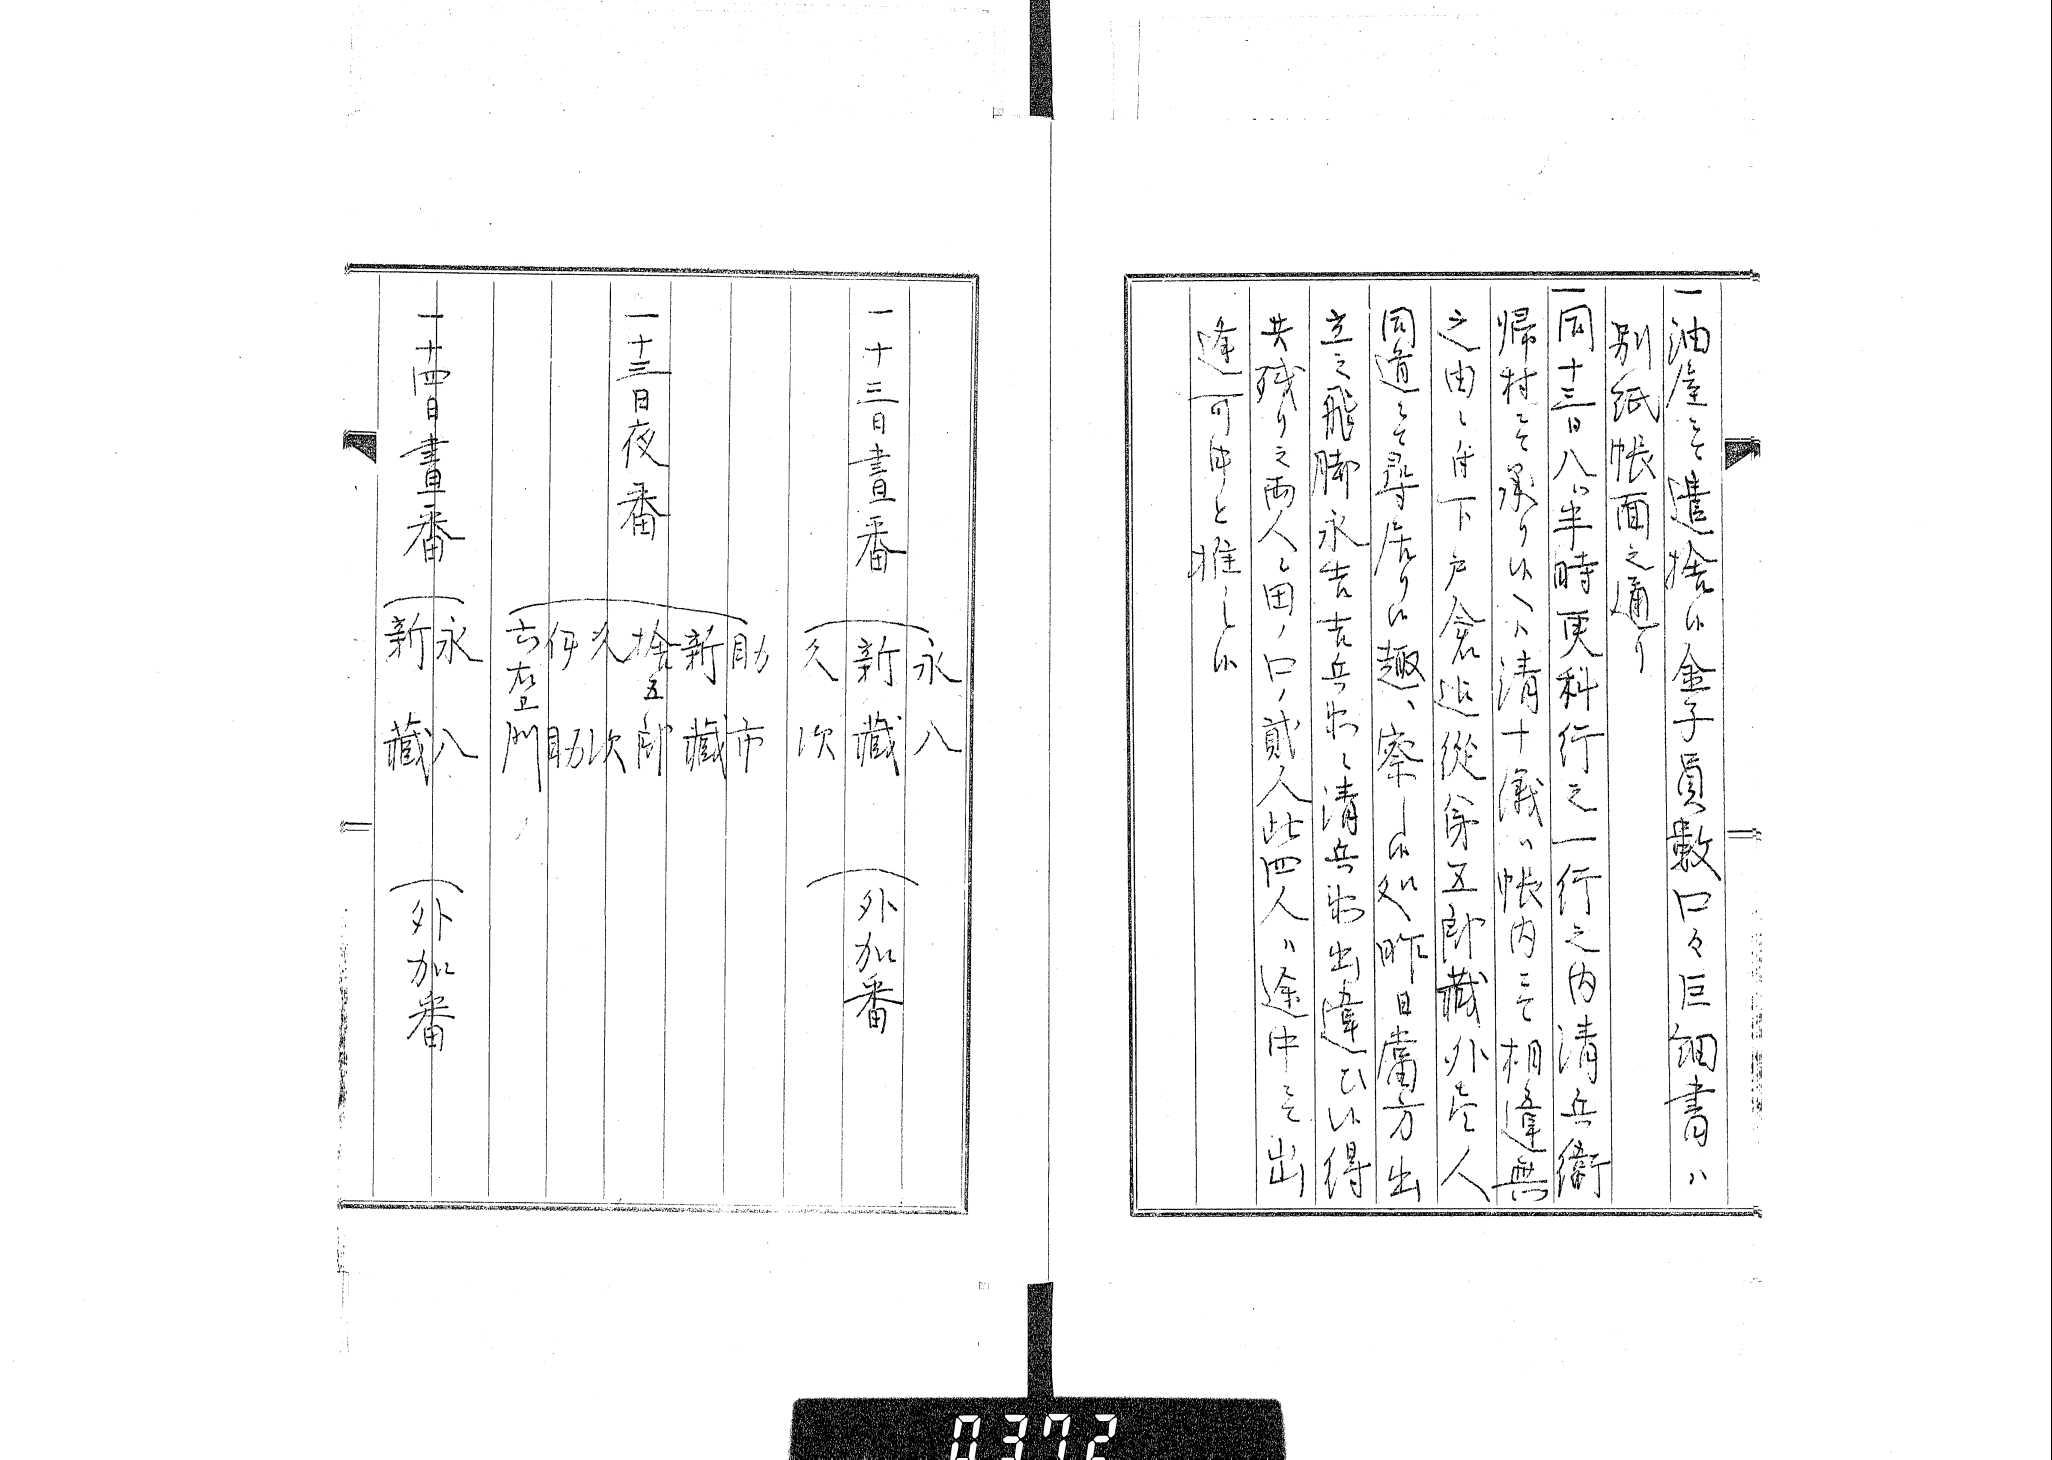 一油屋ニ而遣捨候金子員數口々巨細書ハ
別紙帳面之通り
一同十三日八ツ半時更科行之一行之内清兵衛
帰村ニ而承り候ヘハ清十儀ハ帳内ニ而相逢無
之由ニ付下戸倉迄從弟五郎藏外壱人
同道ニ而尋居り候趣ハ察し候処昨日當方出
立之飛脚永吉吉兵衛ニ清兵衛出違ひ候得
共残り之両人ニ田ノ口ノ貳人此四人ハ途中ニ而出
逢可申と推し候
一十三日晝番
永八
新藏
久次
外加番
一十三日夜番
助市
新藏
捨五郎
久次
伊助
古右衛門
一十四日晝番
永八
新藏
外加番
0372